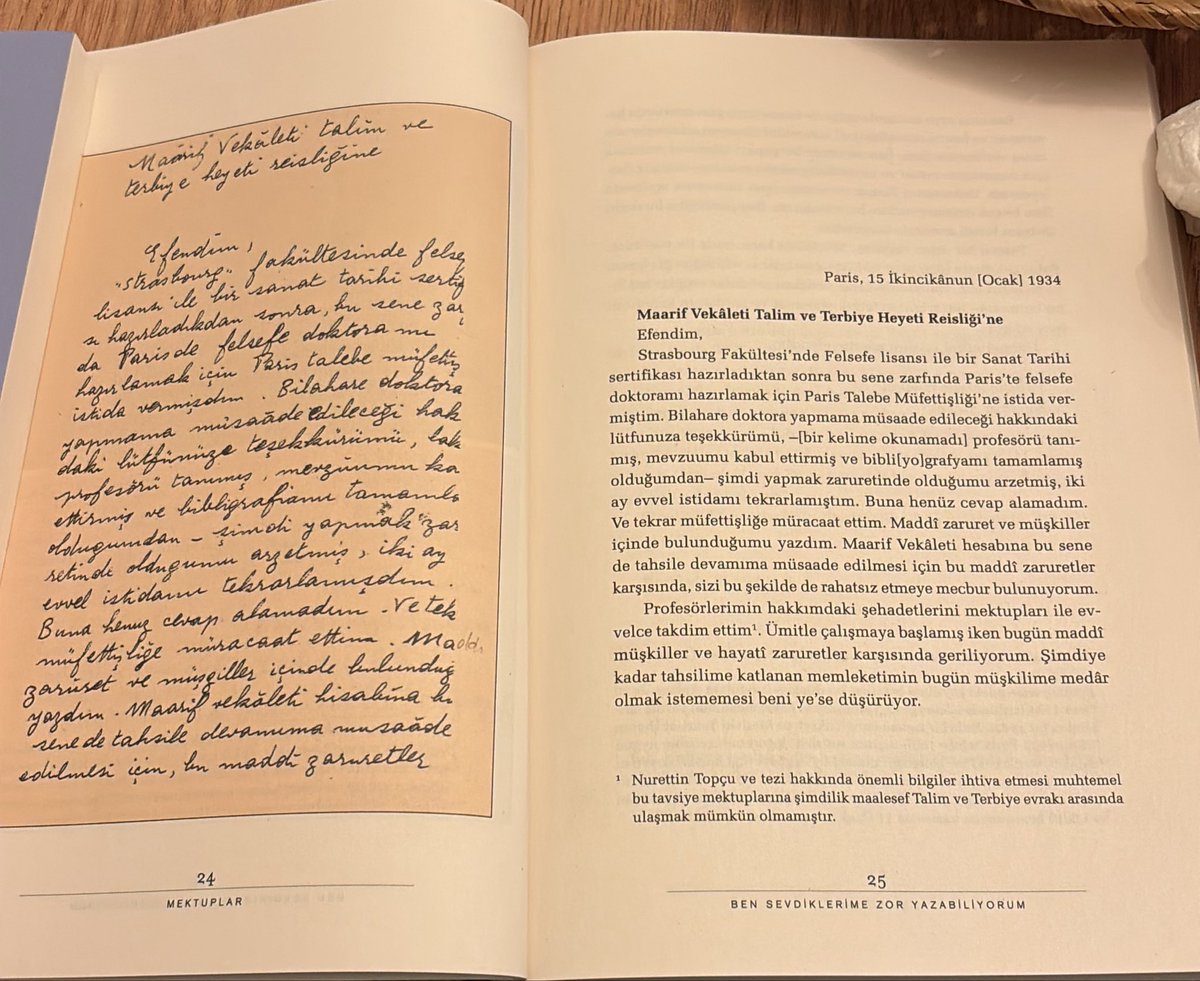 Maârif Vekâleti talim ve
terbiye heyeti reisliğine
Efendim,
"Strasbourg" fakültesinde felse
lisansı ile bir sanat tarihi sertifi
sı hazırladıkdan sonra, bu sene zar
da Parisde felsefe doktoramı
hazırlamak için Paris talebe müfettiş
istida vermişdim. Bilahare doktora
yapmama müsaade edileceği hak
daki lûtfünüze teşekkürümü,
profesörü tanımış, mevzûumu ka
ettirmiş ve bibligrafiamı tamamla
olduğumdan – şimdi yapmak zar
retinde olduğumu arzetmiş, iki ay
evvel istidamı tekrarlamışdım.
Buna henüz cevap alamadım. Ve tek
müfettişliğe müracaat ettim. Ma
zarûret ve müşgiller içinde bulunduğ
yazdım. Maarif vekâleti hisabına bu
sene de tahsile devamıma musaâde
edilmesi için, bu maddî zaruretler
24
MEKTUPLAR
Paris, 15 İkincikânun [Ocak] 1934
Maarif Vekâleti Talim ve Terbiye Heyeti Reisliği'ne
Efendim,
Strasbourg Fakültesi'nde Felsefe lisansı ile bir Sanat Tarihi
sertifikası hazırladıktan sonra bu sene zarfında Paris'te felsefe
doktoramı hazırlamak için Paris Talebe Müfettişliği'ne istida ver-
miştim. Bilahare doktora yapmama müsaade edileceği hakkındaki
lütfunuza teşekkürümü, –[bir kelime okunamadı] profesörü tanı-
mış, mevzuumu kabul ettirmiş ve bibli[yo]grafyamı tamamlamış
olduğumdan– şimdi yapmak zaruretinde olduğumu arzetmiş, iki
ay evvel istidamı tekrarlamıştım. Buna henüz cevap alamadım.
Ve tekrar müfettişliğe müracaat ettim. Maddî zaruret ve müşkiller
içinde bulunduğumu yazdım. Maarif Vekâleti hesabına bu sene
de tahsile devamıma müsaade edilmesi için bu maddî zaruretler
karşısında, sizi bu şekilde de rahatsız etmeye mecbur bulunuyorum.
Profesörlerimin hakkımdaki şehadetlerini mektupları ile ev-
velce takdim ettim¹. Ümitle çalışmaya başlamış iken bugün maddî
müşkiller ve hayatî zaruretler karşısında geriliyorum. Şimdiye
kadar tahsilime katlanan memleketimin bugün müşkilime medâr
olmak istememesi beni ye'se düşürüyor.
¹ Nurettin Topçu ve tezi hakkında önemli bilgiler ihtiva etmesi muhtemel
bu tavsiye mektuplarına şimdilik maalesef Talim ve Terbiye evrakı arasında
ulaşmak mümkün olmamıştır.
25
BEN SEVDİKLERİME ZOR YAZABİLİYORUM